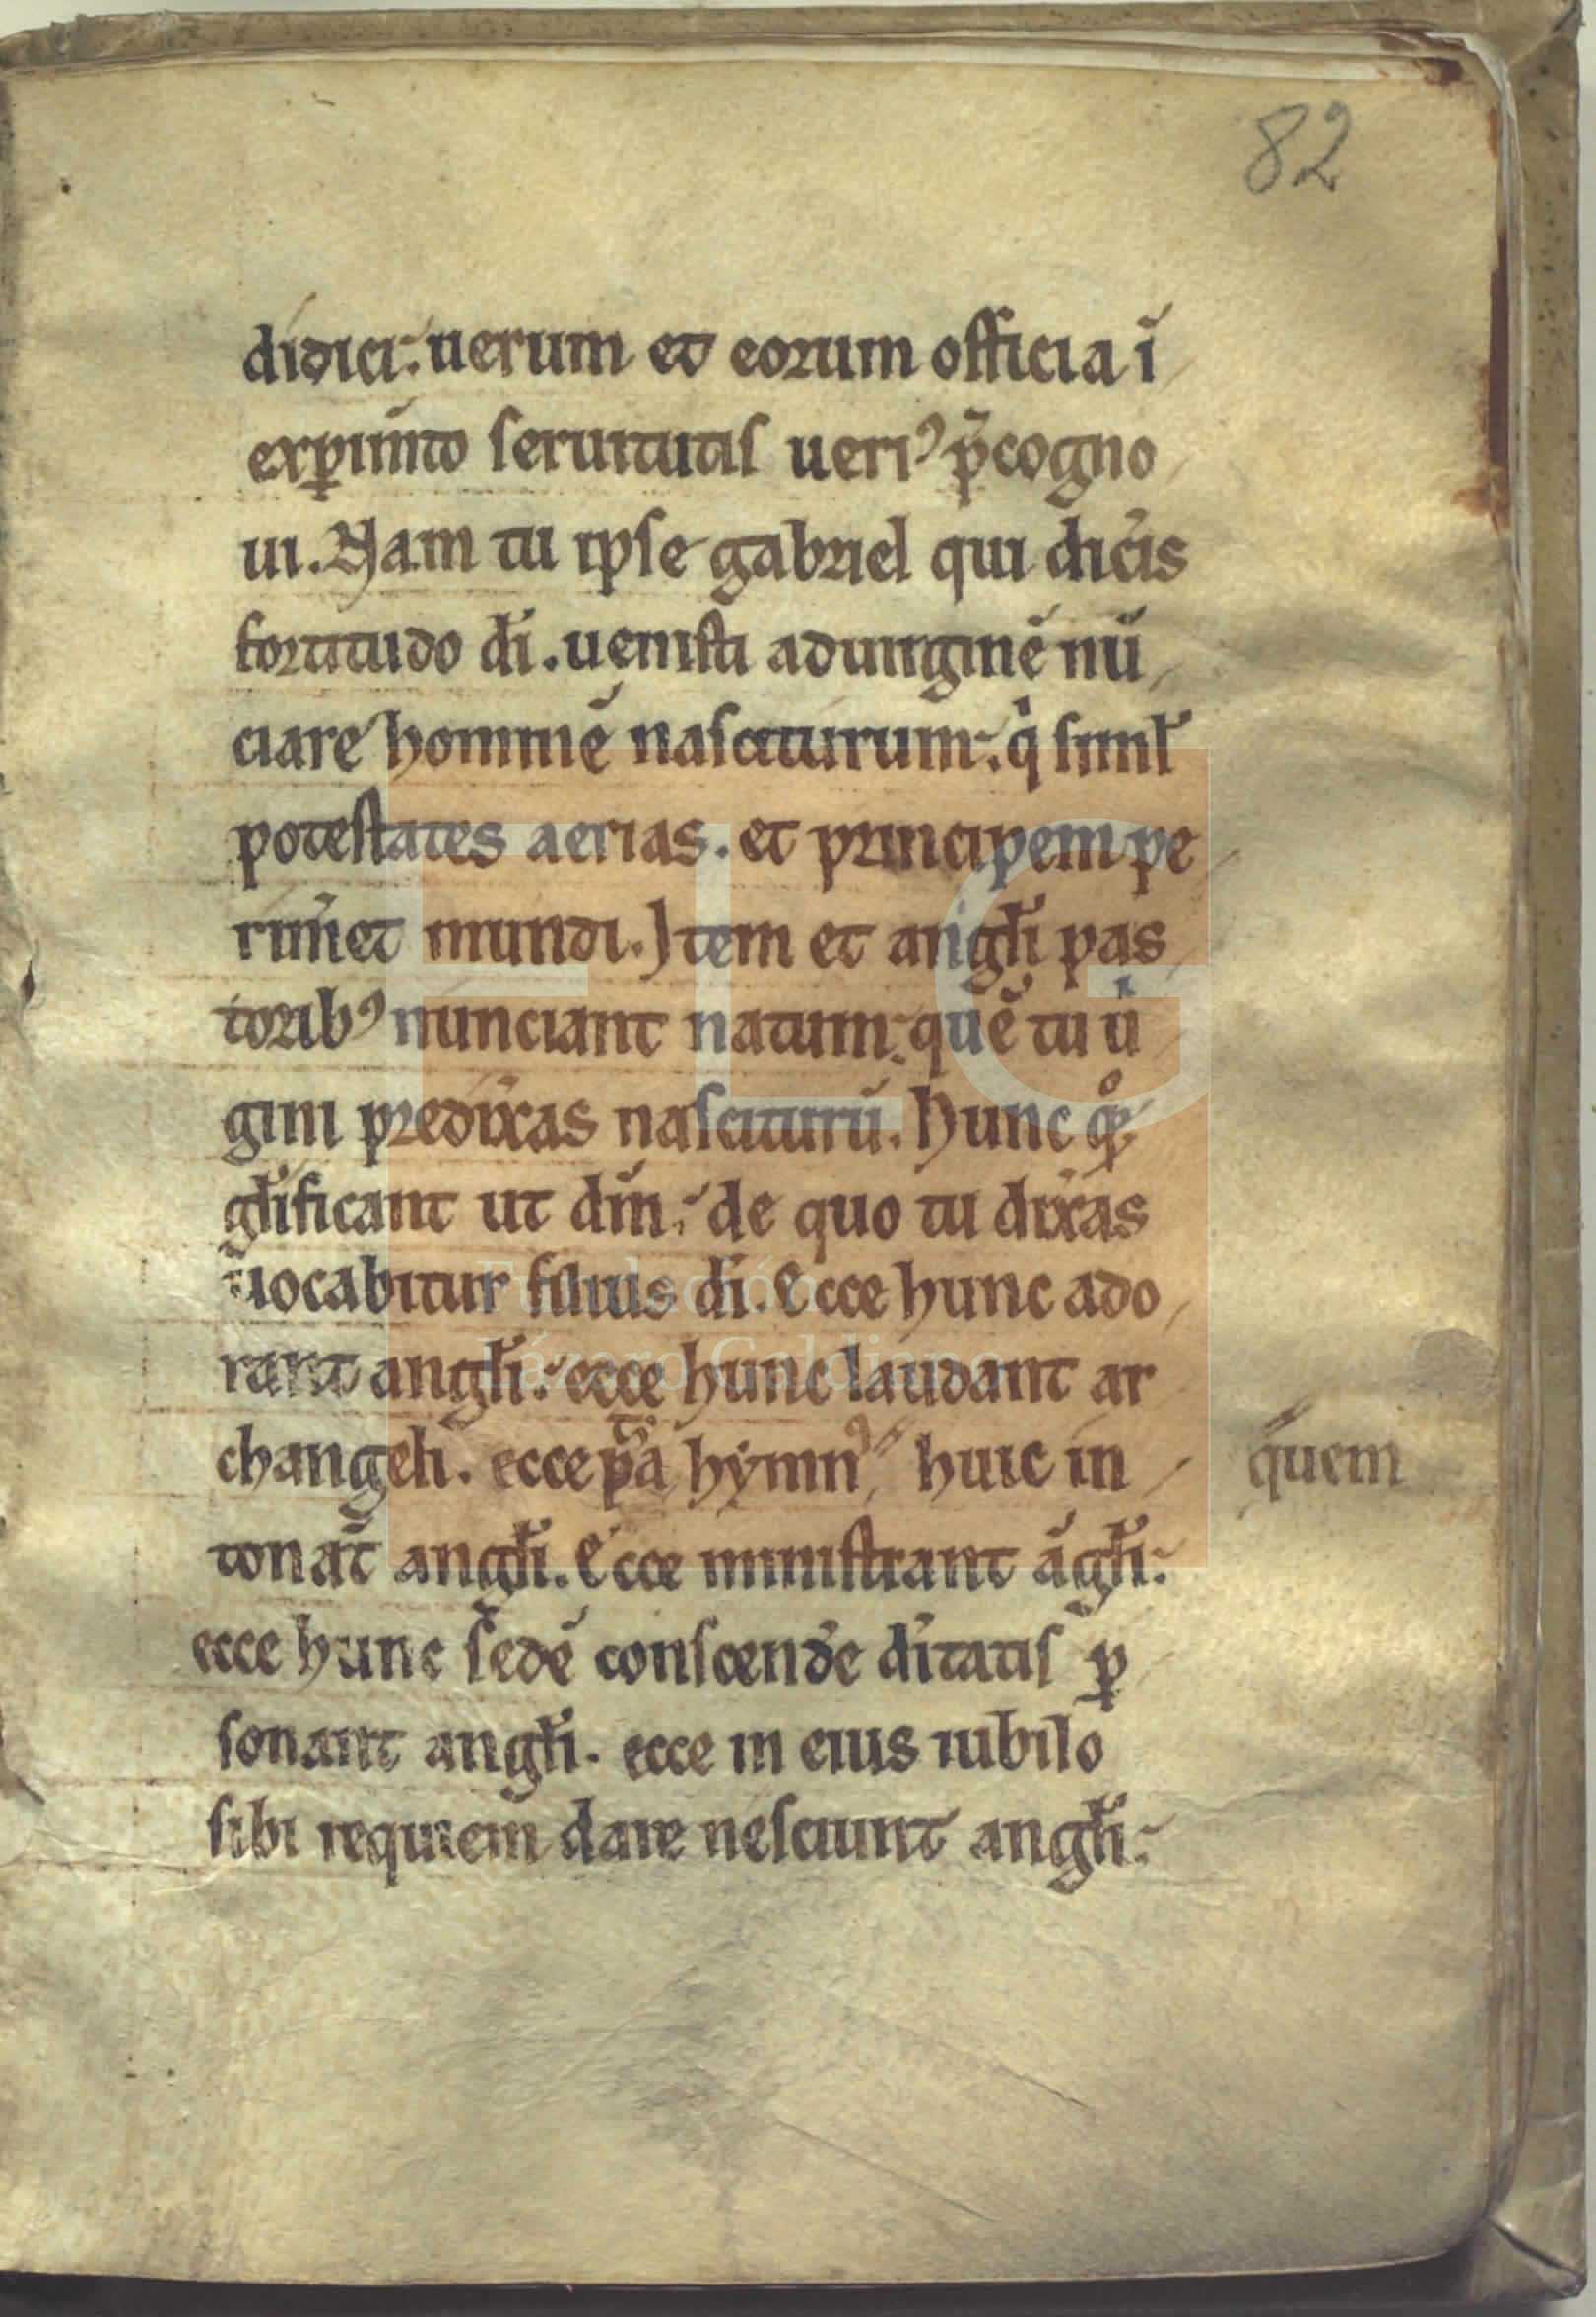 82
didici: uerum et eorum officia ĩ
exꝑim̄to seruitutis ueriꝰ p̄cogno
ui. Nam tu ipse gabriel qui dic̃is
fortitudo dī. uenisti aduirginē nū
ciare hominē nasciturum: qͥ siml̃
potestates aerias. et principem pe
rim̃et mundi. Item et angl̃i pas
toribꝰ nunciant natum: quē tu uͥ
gini predix̃as nasciturū. Hunc qͦꝫ
gl̃ificant ut dm̄: de quo tu dix̃as
uocabitur filius dī. Ecce hunc ado
rant angl̃i: ecce hunc laudant ar
changeli. ecce hymnꝰ huic in
quem
tonãt angl̃i. Ecce ministrant ãgl̃i:
ecce hunc sedē conscend̃e dītatis ꝑ
sonant angl̃i. ecce in eius iubilo
sibi requiem dare nesciunt angl̃i:
FLG
Fundación
Lázaro Galdiano